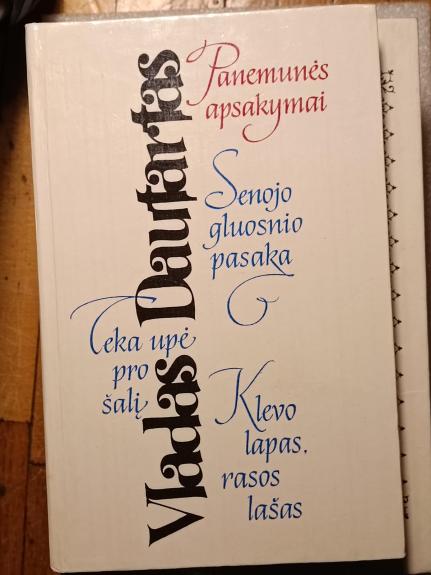 Vladas Dautartas
Panemunės
apsakymai
Senojo
gluosnio
pasaka
Teka upė
pro
šalį
Klevo
lapas,
rasos
lašas